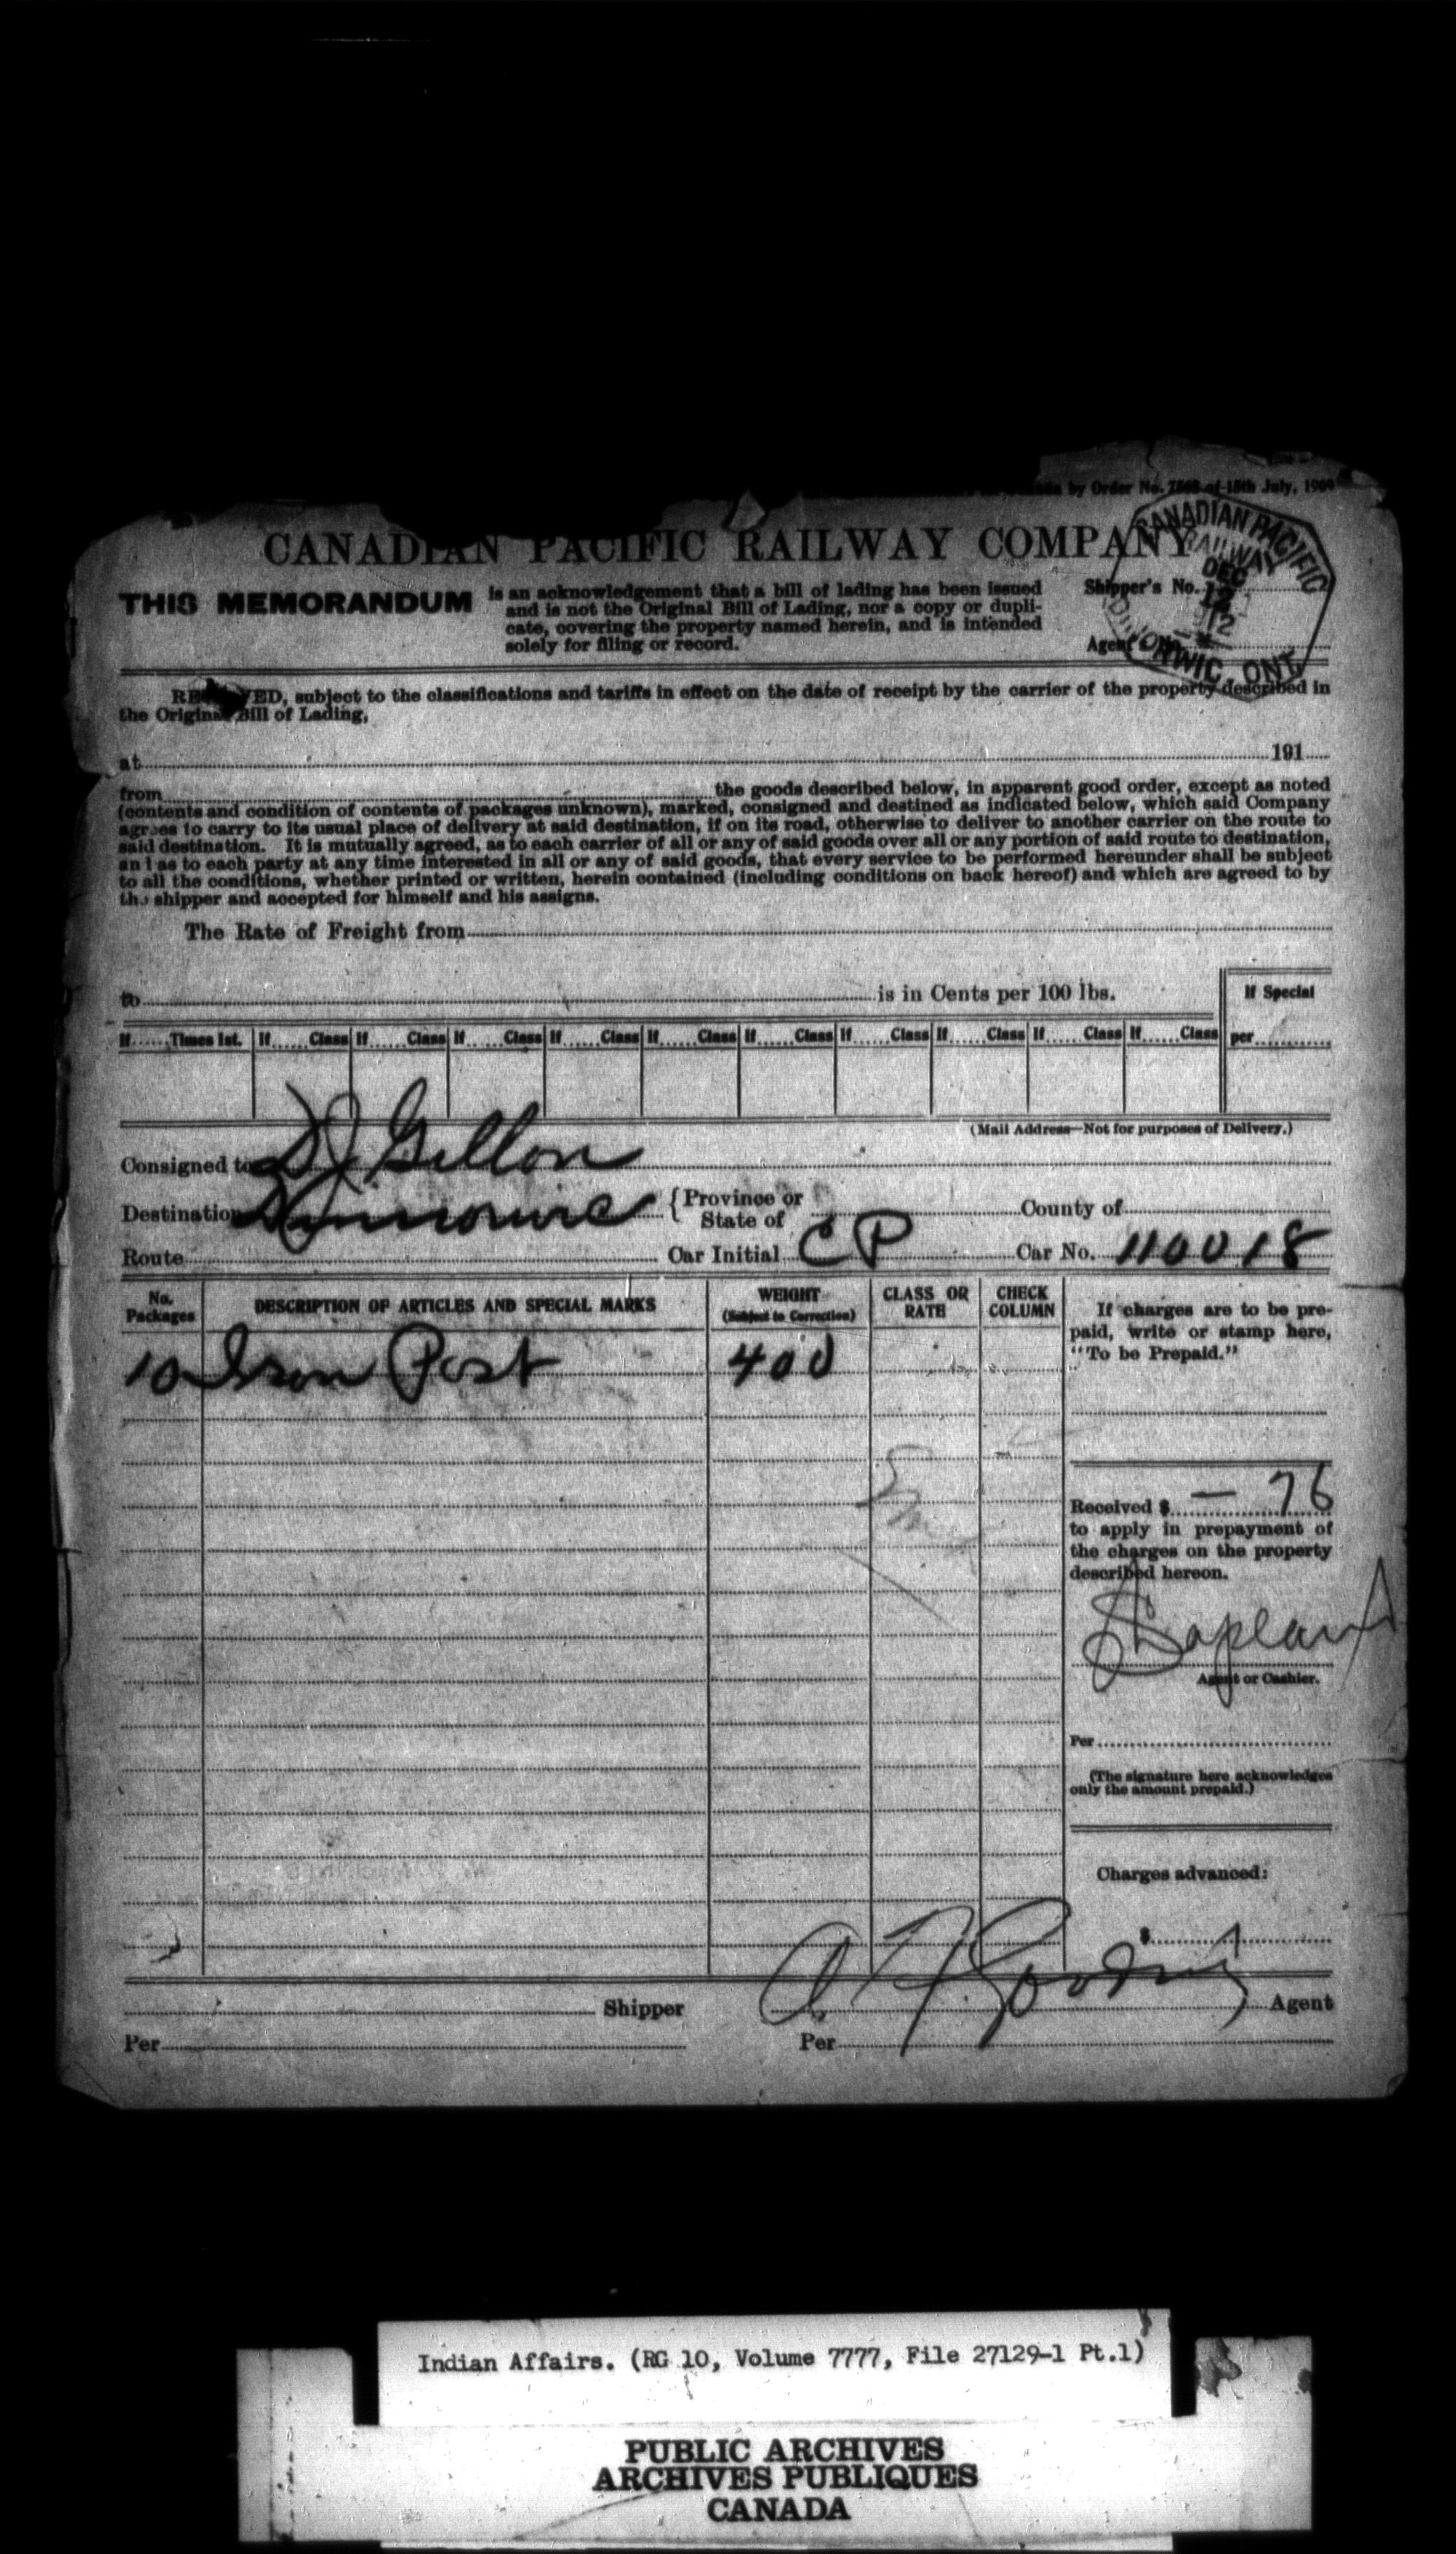 by Order No. 7562 of 15th July, 1909
CANADIAN PACIFIC RAILWAY COMPANY
THIS MEMORANDUM is an acknowledgement that a bill of lading has been issued
and is not the Original Bill of Lading, nor a copy or dupli-
cate, covering the property named herein, and is intended
solely for filing or record.
Shipper's No.
Agent's No.
CANADIAN PACIFIC
RAILWAY
DEC
12
12
ONT.
RECEIVED, subject to the classifications and tariffs in effect on the date of receipt by the carrier of the property described in
the Original Bill of Lading,
at 191
from the goods described below, in apparent good order, except as noted
(contents and condition of contents of packages unknown), marked, consigned and destined as indicated below, which said Company
agrees to carry to its usual place of delivery at said destination, if on its road, otherwise to deliver to another carrier on the route to
said destination. It is mutually agreed, as to each carrier of all or any of said goods over all or any portion of said route to destination,
and as to each party at any time interested in all or any of said goods, that every service to be performed hereunder shall be subject
to all the conditions, whether printed or written, herein contained (including conditions on back hereof) and which are agreed to by
the shipper and accepted for himself and his assigns.
The Rate of Freight from
to is in Cents per 100 lbs.
If Special
per
If Times 1st. If Class If Class If Class If Class If Class If Class If Class If Class If Class If Class
(Mail Address—Not for purposes of Delivery.)
Consigned to D J Gillon
Destination Dinnorwic { Province or State of County of
Route Car Initial C P Car No. 110018
No. Packages DESCRIPTION OF ARTICLES AND SPECIAL MARKS WEIGHT (Subject to Correction) CLASS OR RATE CHECK COLUMN
10 Iron Post 400
If charges are to be pre-
paid, write or stamp here,
"To be Prepaid."
Received $ — 76
to apply in prepayment of
the charges on the property
described hereon.
Agent or Cashier.
Per
(The signature here acknowledges
only the amount prepaid.)
Charges advanced:
$
Shipper Agent
Per Per
Indian Affairs. (RG 10, Volume 7777, File 27129-1 Pt.1)
PUBLIC ARCHIVES
ARCHIVES PUBLIQUES
CANADA